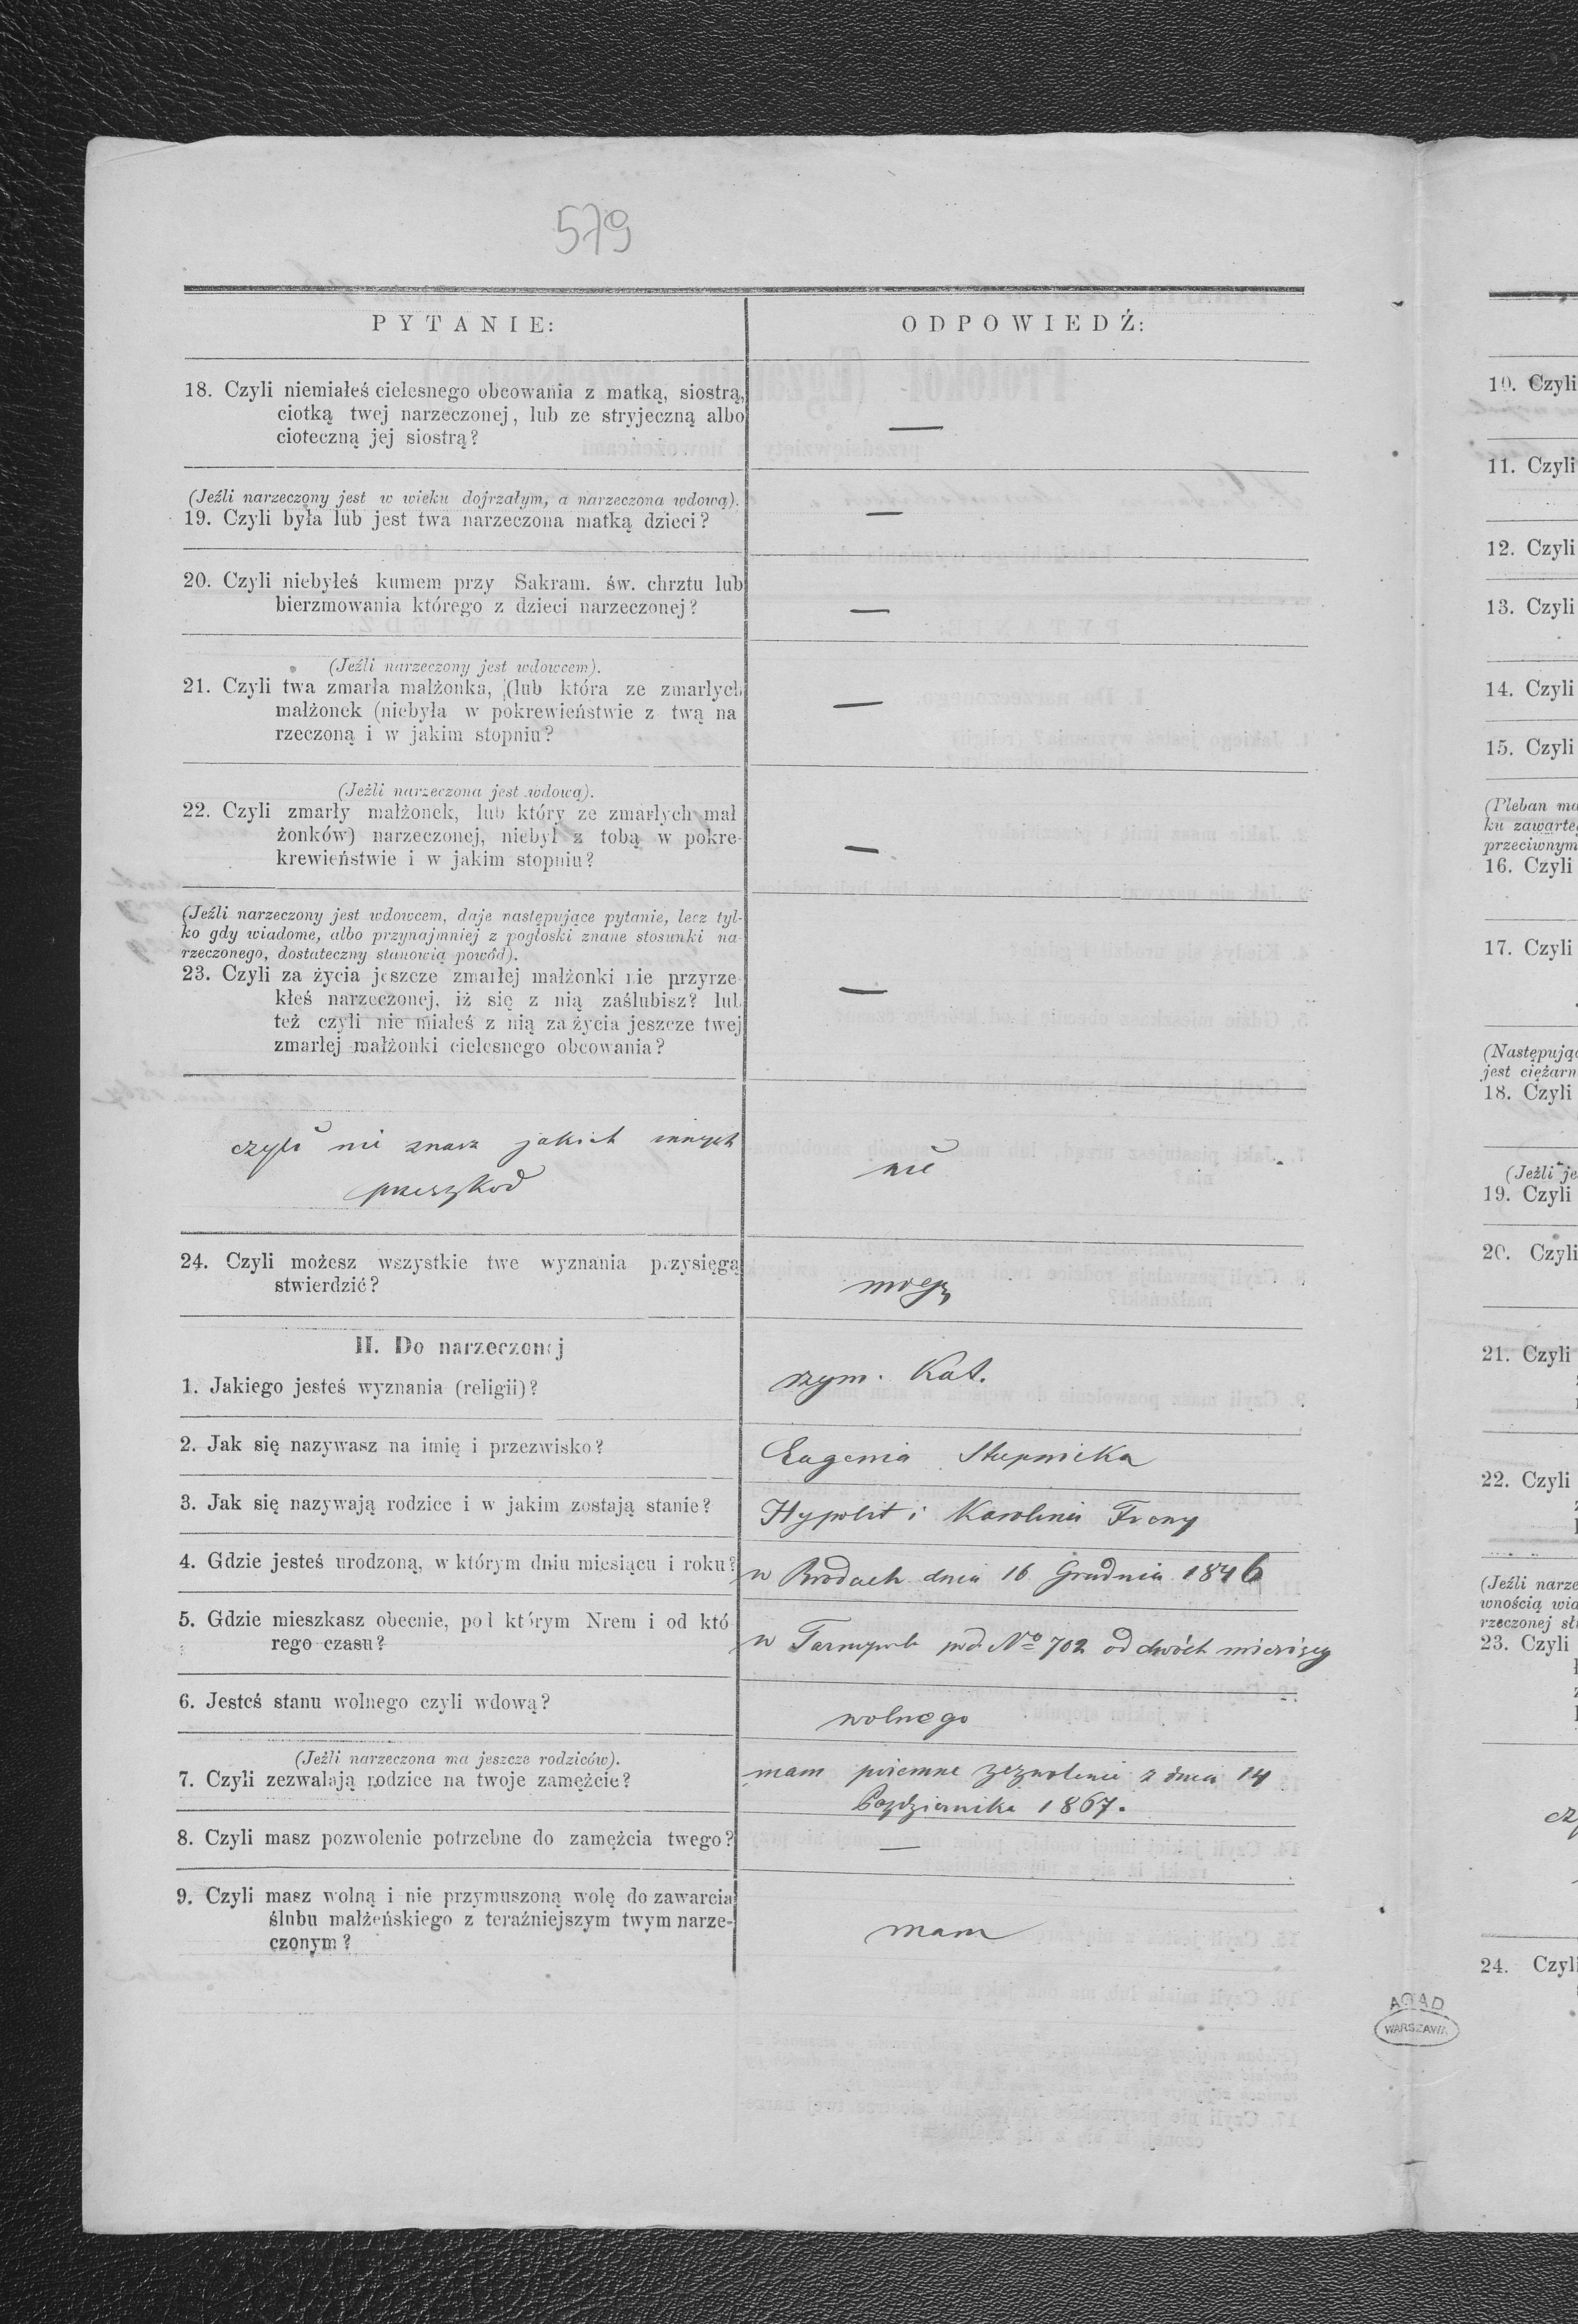 579
PYTANIE:
ODPOWIEDŹ:
18. Czyli niemiałeś cielesnego obcowania z matką, siostrą,
ciotką twej narzeczonej, lub ze stryjeczną albo
cioteczną jej siostrą?
—
(Jeźli narzeczony jest w wieku dojrzałym, a narzeczona wdową).
19. Czyli była lub jest twa narzeczona matką dzieci?
—
20. Czyli niebyłeś kumem przy Sakram. św. chrztu lub
bierzmowania którego z dzieci narzeczonej?
—
(Jeźli narzeczony jest wdowcem).
21. Czyli twa zmarła małżonka, (lub która ze zmarłych
małżonek (niebyła w pokrewieństwie z twą na
rzeczoną i w jakim stopniu?
—
(Jeźli narzeczona jest wdową).
22. Czyli zmarły małżonek, lub który ze zmarłych mał
żonków) narzeczonej, niebył z tobą w pokre-
krewieństwie i w jakim stopniu?
—
(Jeźli narzeczony jest wdowcem, daje następujące pytanie, lecz tyl-
ko gdy wiadome, albo przynajmniej z pogłoski znane stosunki na-
rzeczonego, dostateczny stanowią powód).
23. Czyli za życia jeszcze zmarłej małżonki nie przyrze
kłeś narzeczonej, iż się z nią zaślubisz? lub
też czyli nie miałeś z nią za życia jeszcze twej
zmarłej małżonki cielesnego obcowania?
—
czyli nie znasz jakich innych
przeszkod
nie
24. Czyli możesz wszystkie twe wyznania przysięgą
stwierdzić?
mogę
II. Do narzeczonej
1. Jakiego jesteś wyznania (religii)?
rzym. Kat.
2. Jak się nazywasz na imię i przezwisko?
Eugenia Stupnicka
3. Jak się nazywają rodzice i w jakim zostają stanie?
Hypolit i Karolina
4. Gdzie jesteś urodzoną, w którym dniu miesiącu i roku?
w Brodach dnia 16 Grudnia 1846
5. Gdzie mieszkasz obecnie, pod którym Nrem i od któ
rego czasu?
w Tarnopolu pod No 702 od dwóch miesięcy
6. Jesteś stanu wolnego czyli wdową?
wolnego
(Jeźli narzeczona ma jeszcze rodziców).
7. Czyli zezwalają rodzice na twoje zamęźcie?
mam pisemne zezwolenie z dnia 14
Października 1867.
8. Czyli masz pozwolenie potrzebne do zamęźcia twego?
—
9. Czyli masz wolną i nie przymuszoną wolę do zawarcia
ślubu małżeńskiego z teraźniejszym twym narze-
czonym?
mam
10. Czyli
11. Czyli
12. Czyli
13. Czyli
14. Czyli
15. Czyli
(Pleban
ku
przeciwnym
16. Czyli
17. Czyli
jest
18. Czyli
(Jeźli
19. Czyli
20. Czyli
21. Czyli
22. Czyli
(Jeźli
23. Czyli
24. Czyli
AGAD
WARSZAWA